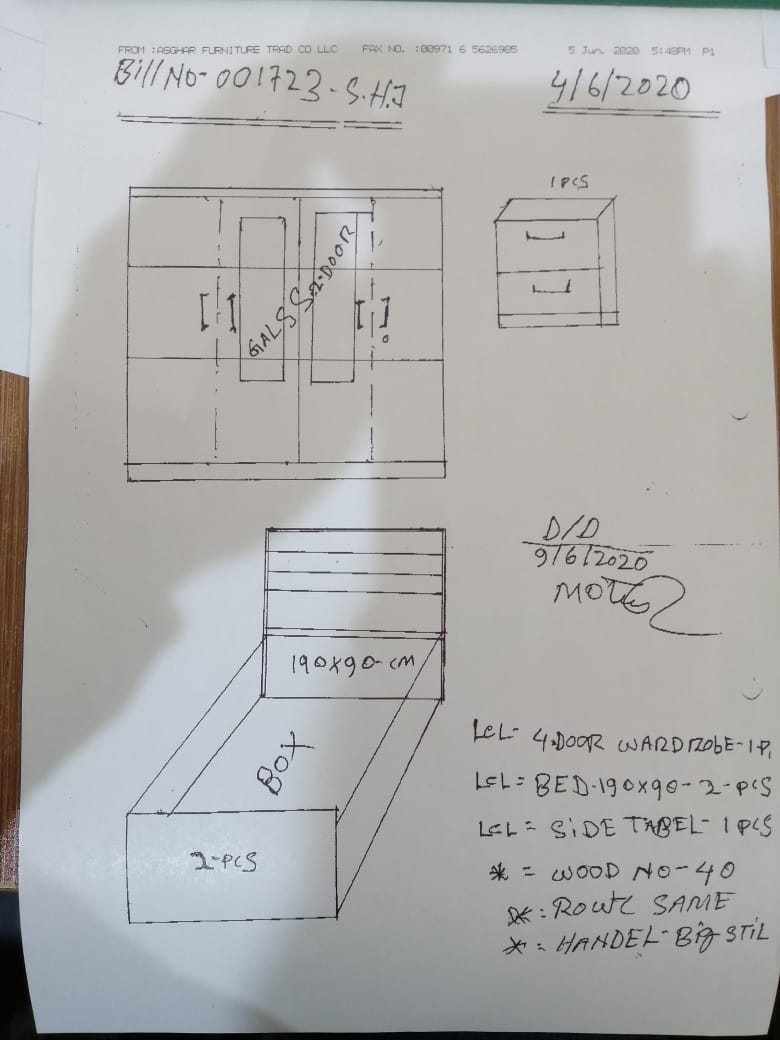 FROM :ASGHAR FURNITURE TRAD CO LLC FAX NO. :00971 6 5626985 5 Jun. 2020 5:48PM P1
Bill No- 001723-S.H.J
4/6/2020
1 PCS
GALSS-2-DOOR
D/D
9/6/2020
190x90-CM
BOX
2-PCS
LCL- 4.DOOR WARDROBE-1P.
LCL= BED-190x90-2-PCS
LCL= SIDE TABEL-1PCS
* = WOOD NO-40
*: SAME
* = HANDEL-BIG STIL